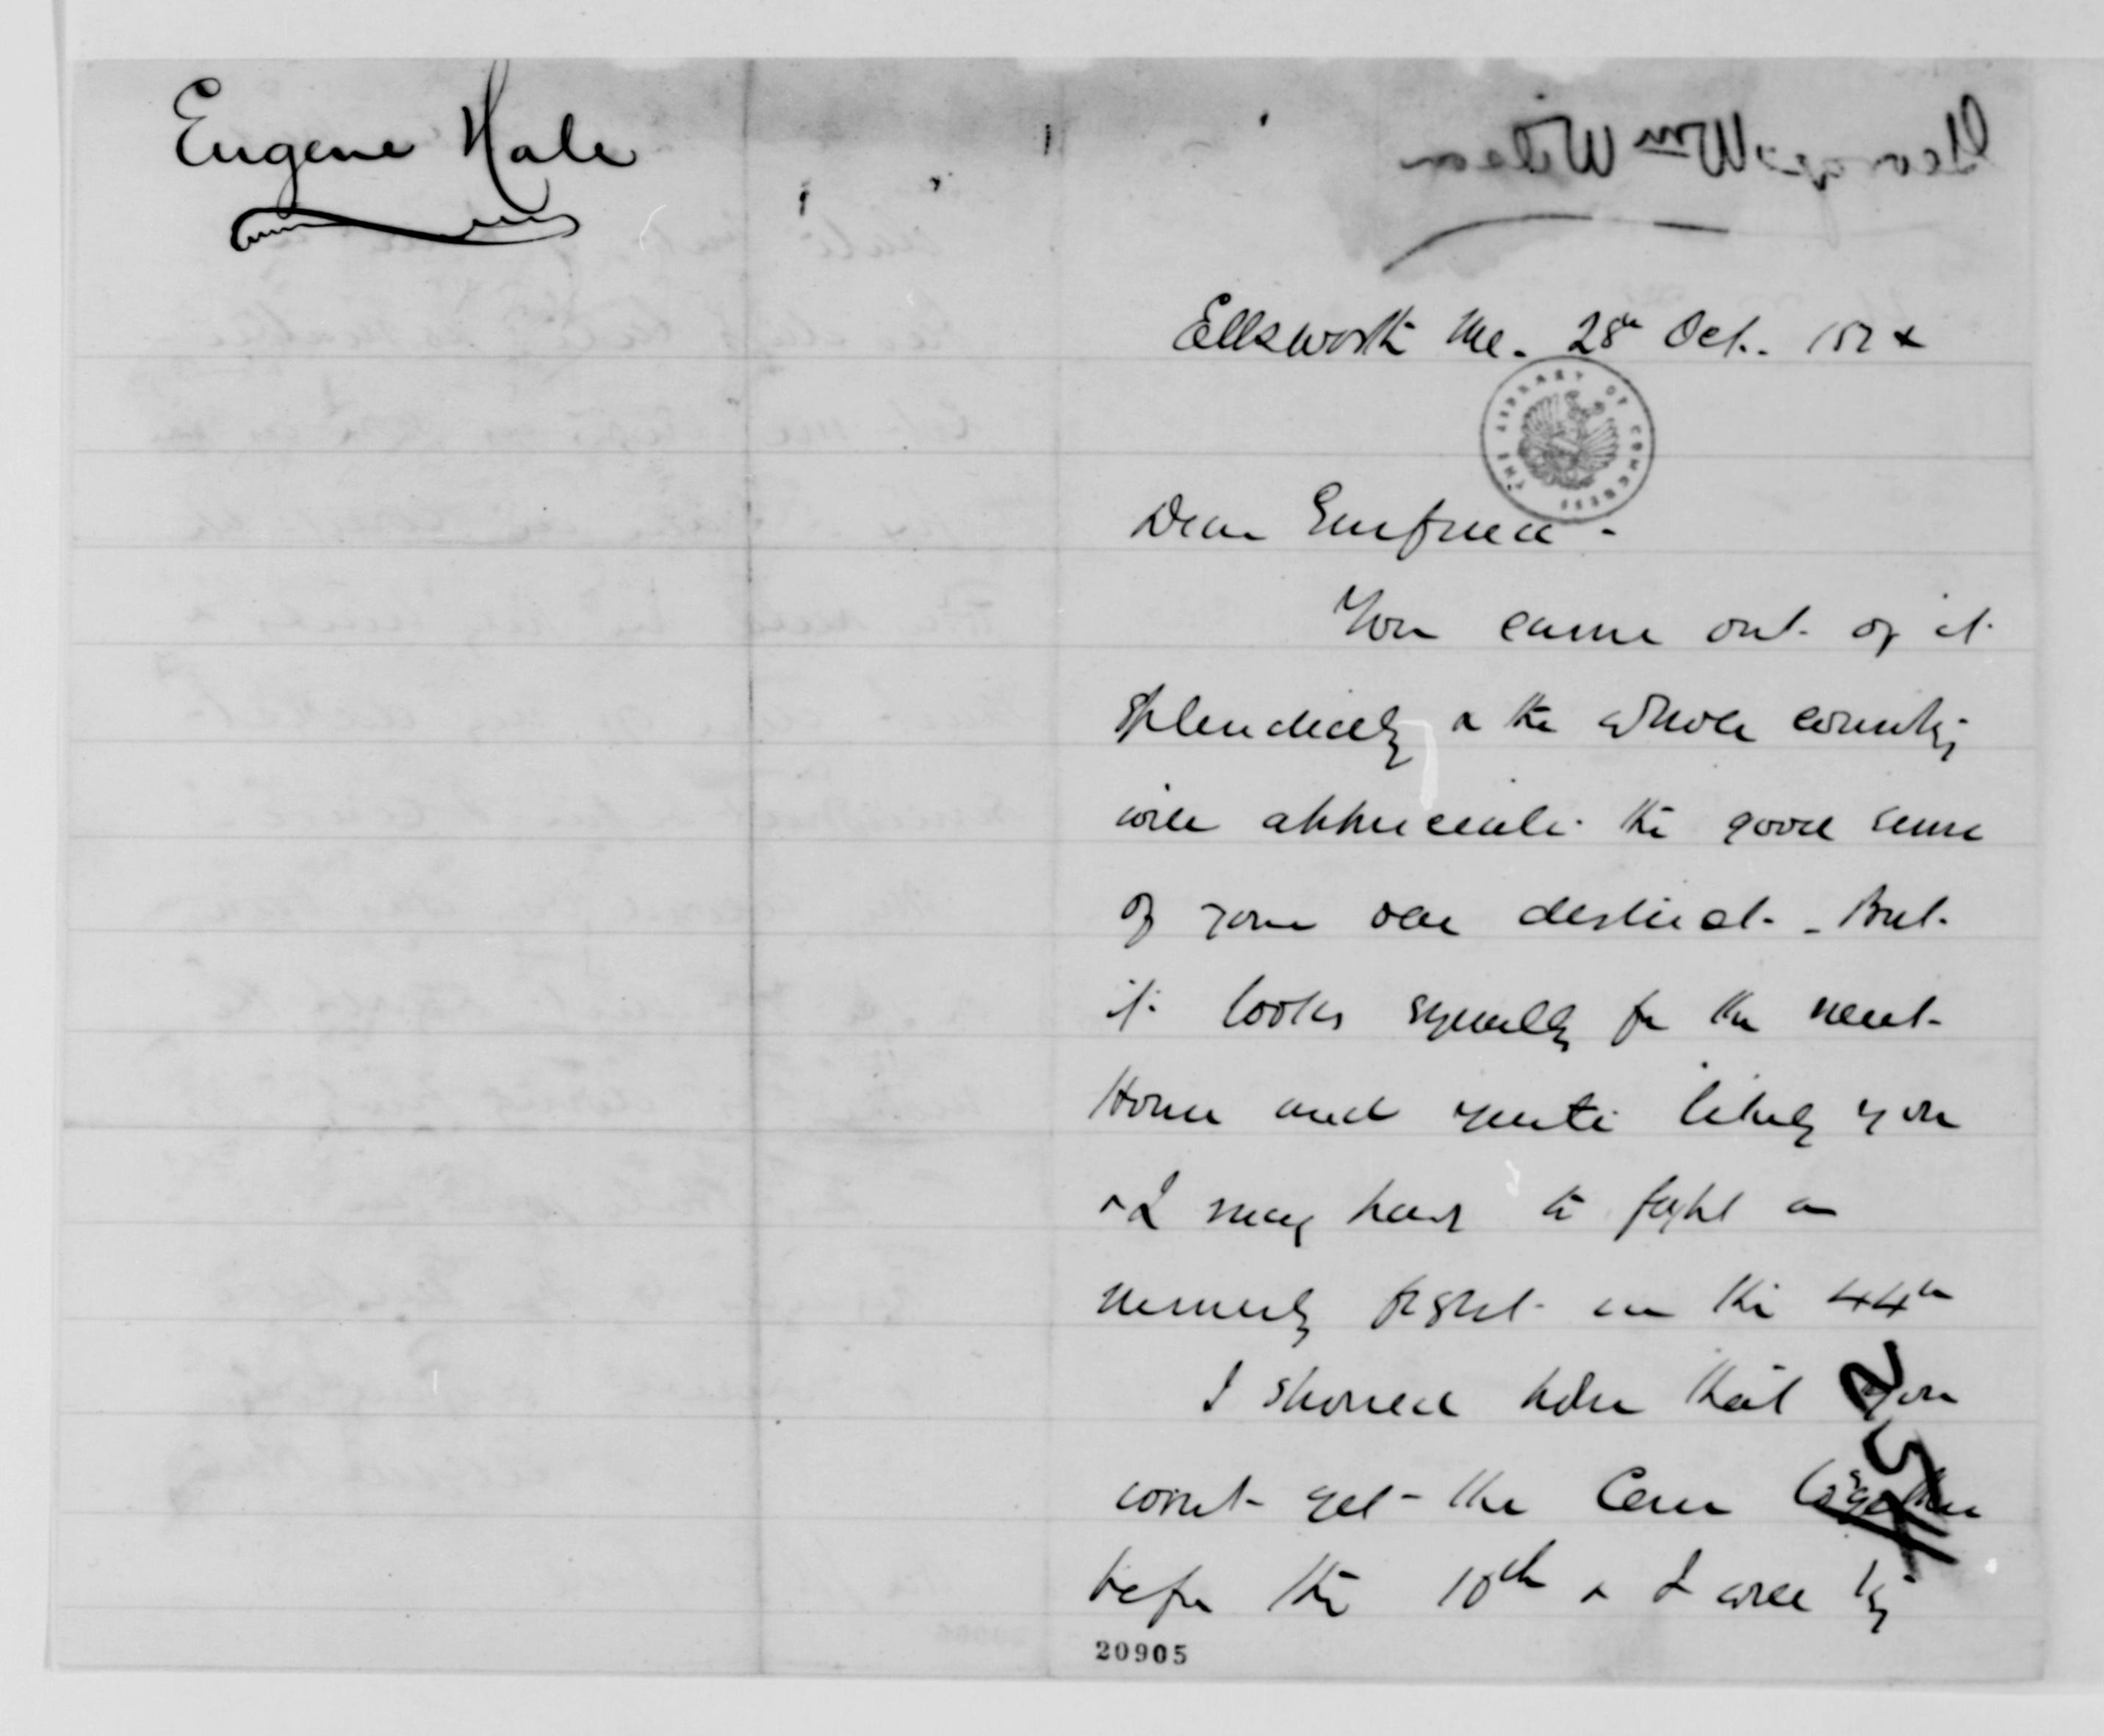 Eugene Hale
George Wm Wilson
Ellsworth Me. 28th Oct. 1874
THE LIBRARY OF CONGRESS
Dear Genfriend -
You came out of it
splendidly & the whole country
will appreciate the good sense
of your old district - But
it looks squally for the next
House and quite likely you
& I may have to fight a
minority fight in the 44th
I should hope that you
won't get the Com together
before the 10th & I will try
20905